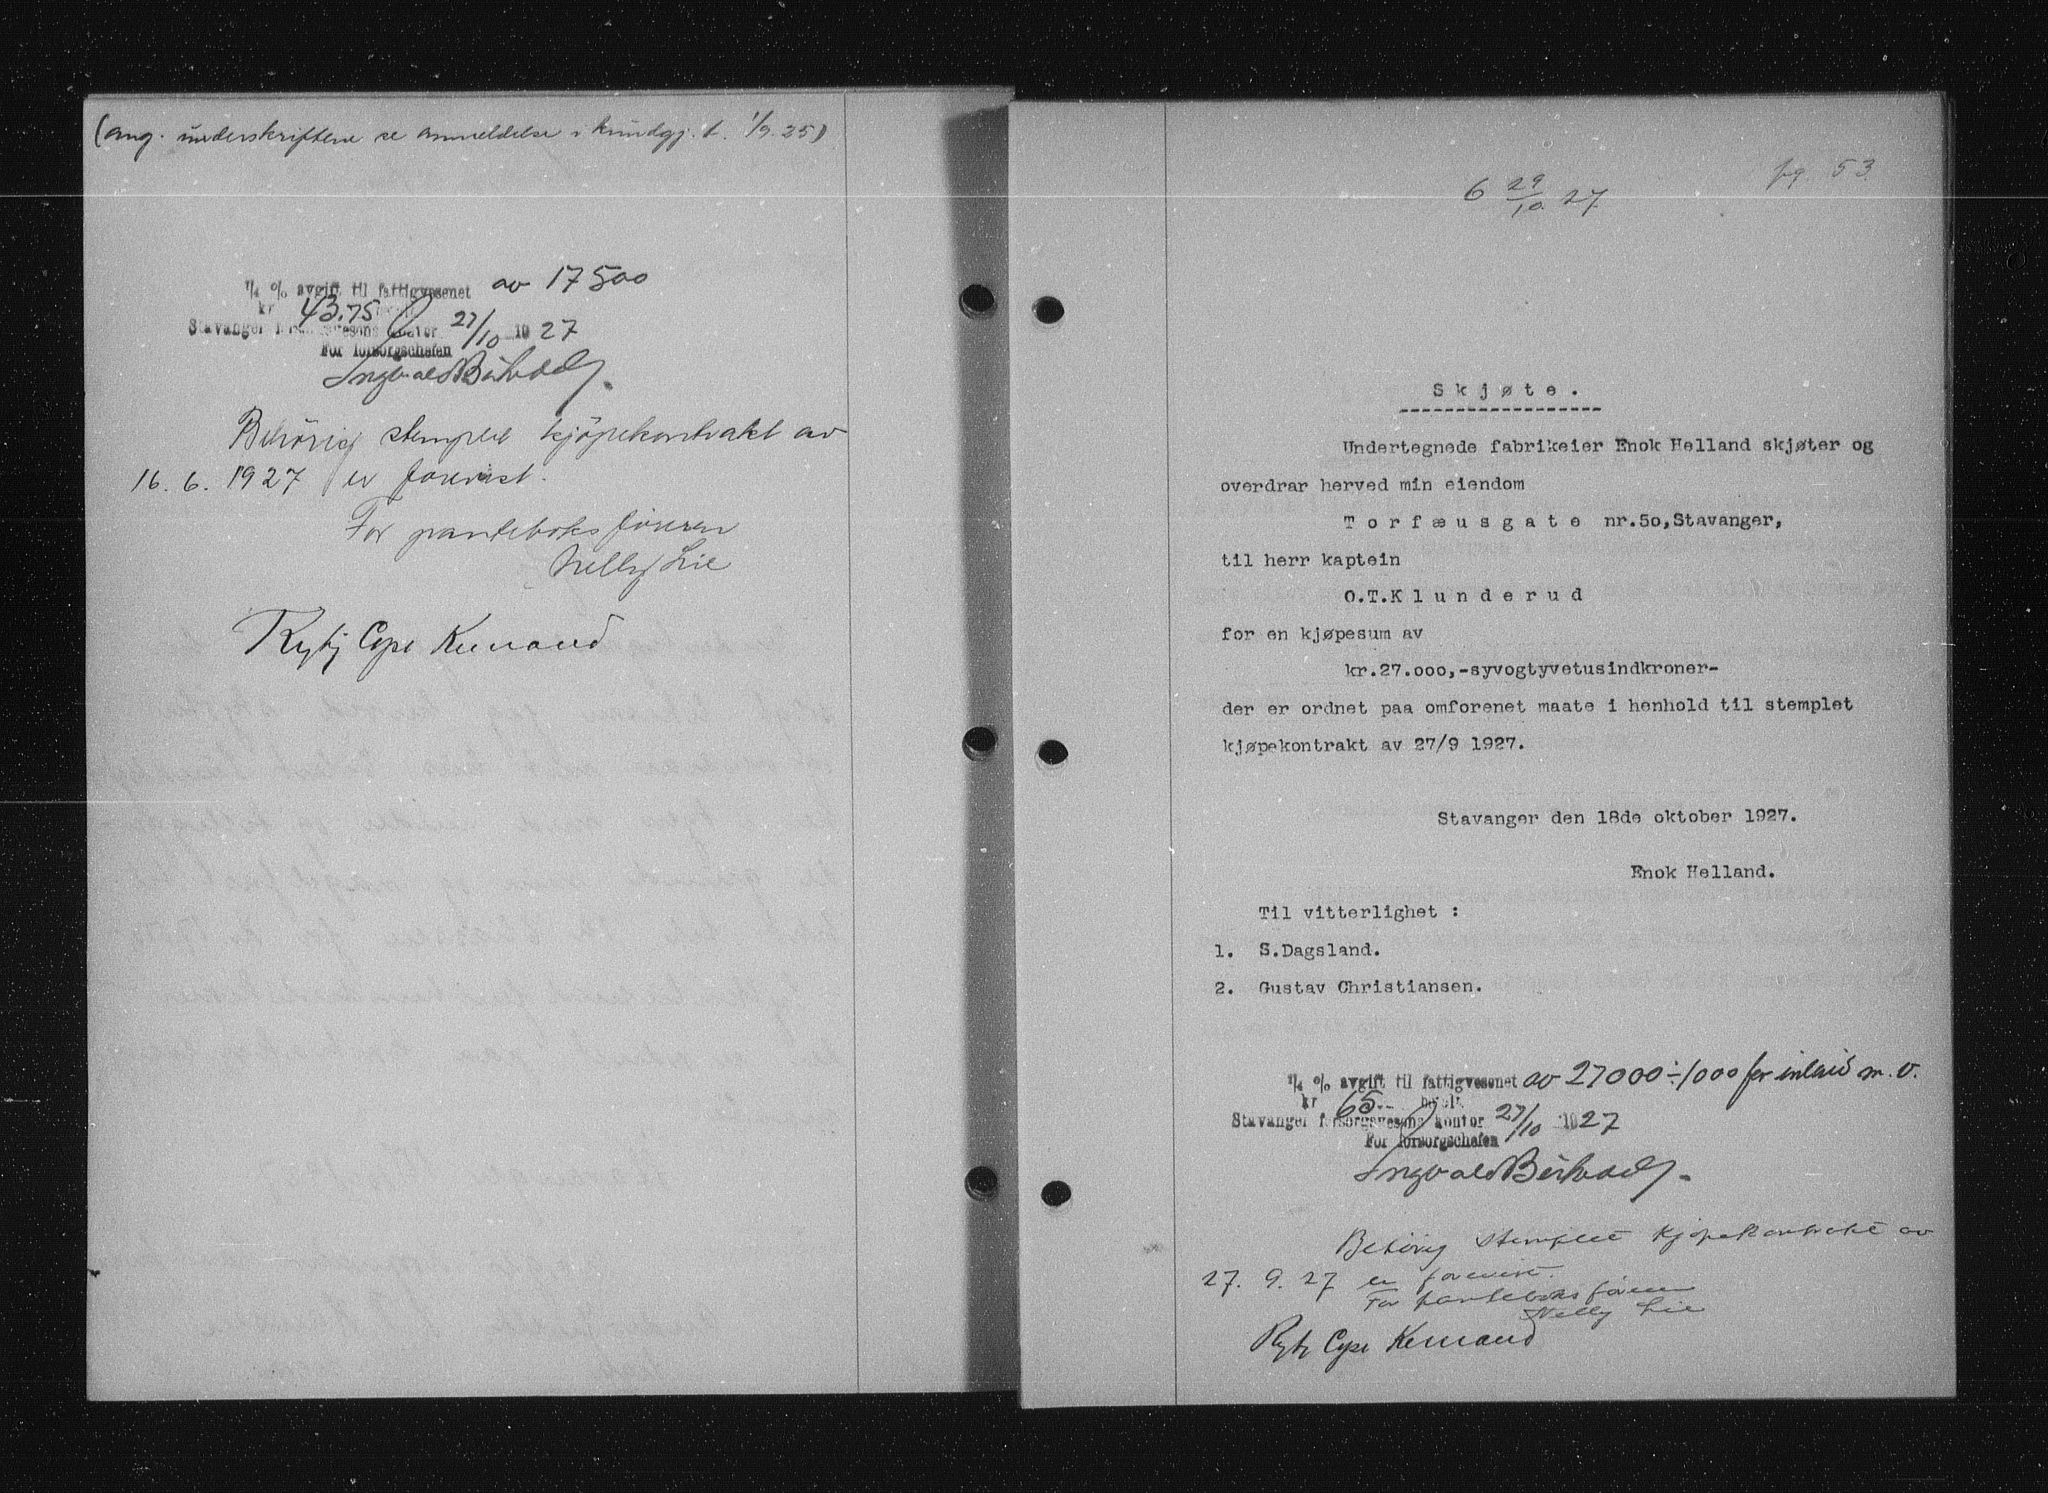 (ang. underskriftene se anmeldelse i kundgj. t. 1/9.25)
1/4 % avgift til fattigvesenet av 17500
kr 43.75
Stavanger forsorgsvesens kontor 27/10 1927
For forsorgschefen
Ingvald
Behörig stemplet kjöpekontrakt av
16. 6. 1927 er forevist.
For panteboksføreren
Nelly Lie
6 29/10. 27
pg. 53
Skjøte.
Undertegnede fabrikeier Enok Helland skjøter og
overdrar herved min eiendom
Torfæusgate nr.50, Stavanger,
til herr kaptein
O.T.Klunderud
for en kjøpesum av
kr.27.000,-syvogtyvetusindkroner-
der er ordnet paa omforenet maate i henhold til stemplet
kjøpekontrakt av 27/9 1927.
Stavanger den 18de oktober 1927.
Enok Helland.
Til vitterlighet :
1. S.Dagsland.
2. Gustav Christiansen.
1/4 % avgift til fattigvesenet av 27000÷1000 for m.v.
kr 65
Stavanger forsorgsvesens kontor 27/10 1927
For forsorgschefen
Ingvald
Behörig stemplet kjøpekontrakt av
27. 9. 27 er forevist.
For panteboksføreren
Nelly Lie